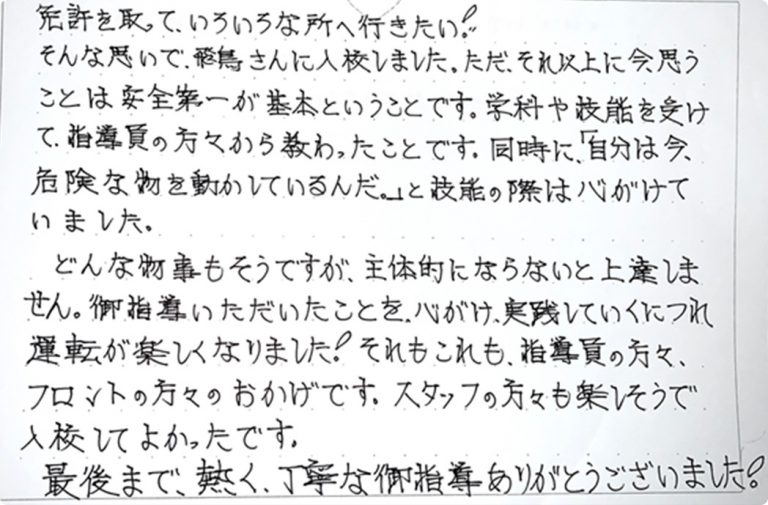 免許を取って、いろいろな所へ行きたい!
そんな思いで、飛鳥さんに入校しました。ただ、それ以上に今、思う
ことは安全第一が基本ということです。学科や技能を受け
て、指導員の方々から教わったことです。同時に、「自分は今、
危険な物を動かしているんだ。」と技能の際は心がけて
いました。
どんな物事もそうですが、主体的にならないと上達しま
せん。御指導いただいたことを、心がけ、実践していくにつれ
運転が楽しくなりました!それもこれも、指導員の方々、
フロントの方々のおかげです。スタッフの方々も楽しそうで
入校してよかったです。
最後まで、熱く、丁寧な御指導ありがとうございました!